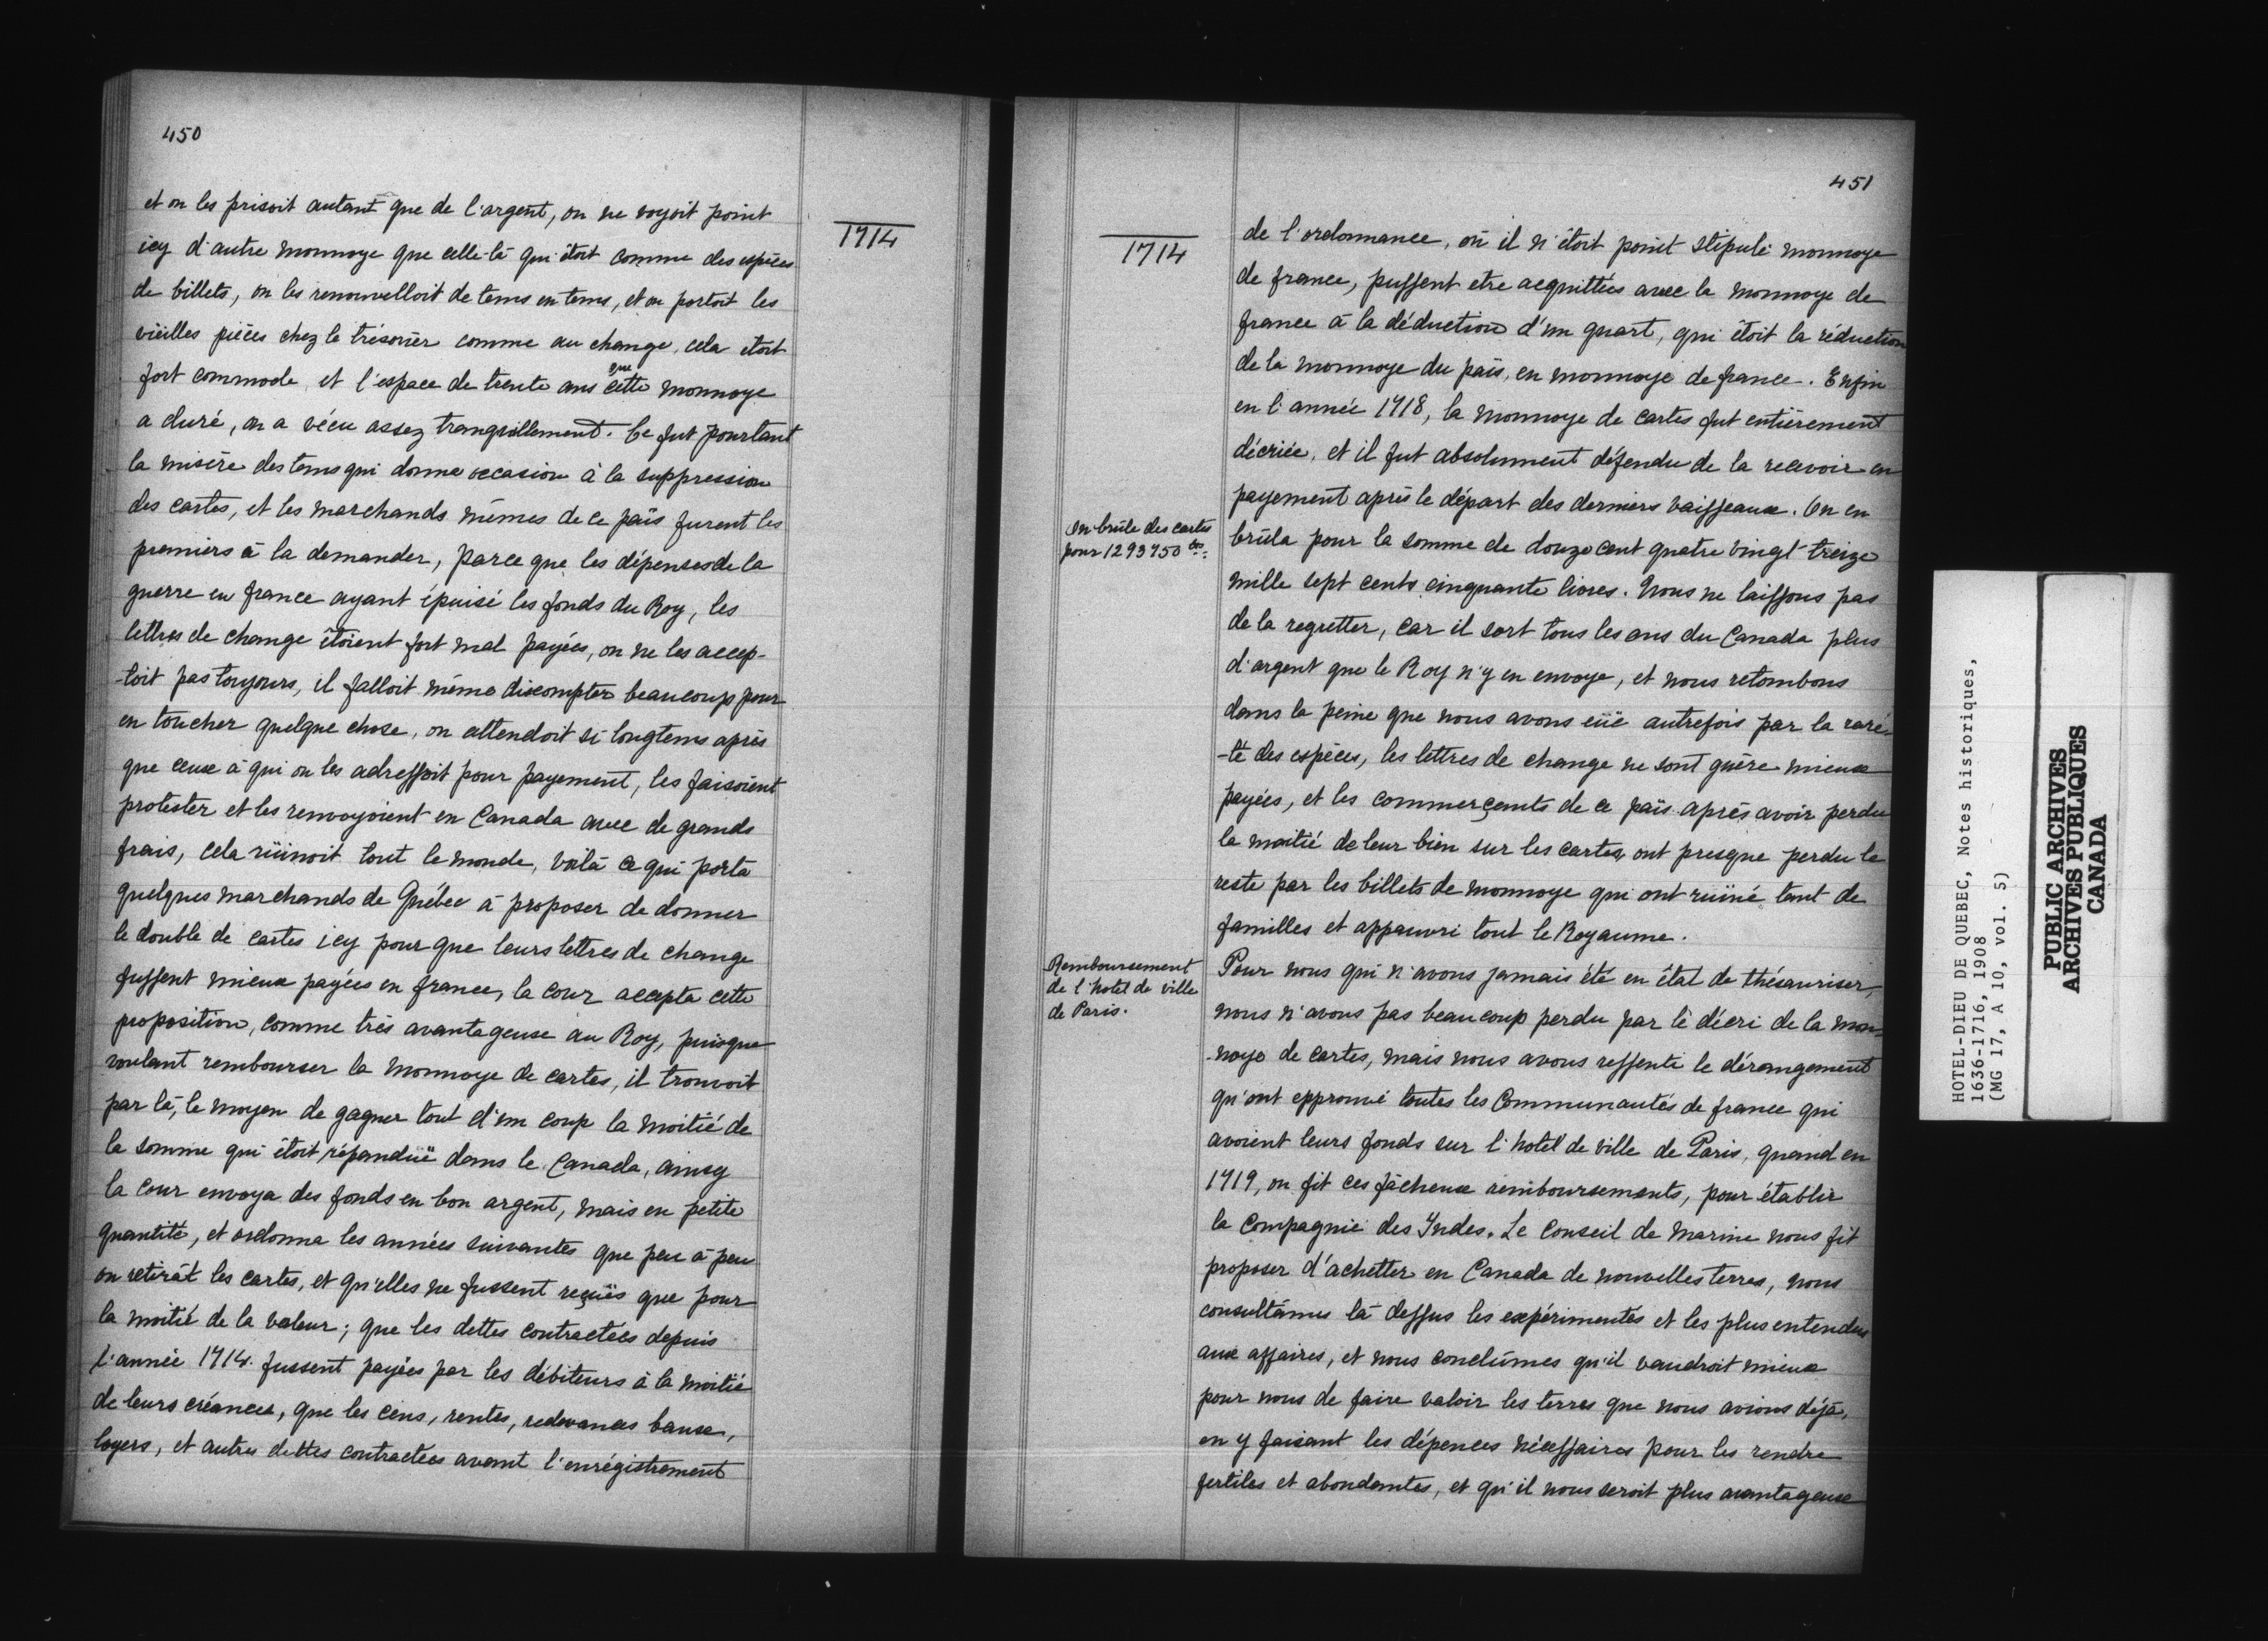 450
1714
et on les prisoit autant que de l'argent, on ne voyoit point
icy d'autre monnoye que celle-là qui étoit comme des espèces
de billets, on les renouvelloit de tems en tems, et on portoit les
vieilles pièces chez le trésorier comme au change, cela étoit
fort commode et l'espace de trente ans que cette monnoye
a duré, on a vécu assez tranquillement. Ce fut pourtant
la misère des tems qui donna occasion à la suppression
des cartes, et les marchands mêmes de ce païs furent les
premiers à la demander, parce que les dépenses de la
guerre en france ayant épuisé les fonds du Roy, les
lettres de change étoient fort mal payées, on ne les accep-
-toit pas toujours, il falloit même discompter beaucoup pour
en toucher quelque chose, on attendoit si longtems après
que ceux à qui on les adressoit pour payement, les faisoient
protester et les renvoyoient en Canada avec de grands
frais, cela rüinoit tout le monde, voilà ce qui porta
quelques marchands de Québec à proposer de donner
le double de cartes icy pour que leurs lettres de change
fussent mieux payées en france, la cour accepta cette
proposition, comme très avantageuse au Roy, puisque
voulant rembourser la monnoye de cartes, il trouvoit
par là, le moyen de gagner tout d'un coup la moitié de
la somme qui étoit répandüe dans le Canada, ainsy
la cour envoya des fonds en bon argent, mais en petite
quantité, et ordonna les années suivantes que peu à peu
on retirât les cartes, et qu'elles ne fussent reçües que pour
la moitié de la valeur; que les dettes contractées depuis
l'année 1714. fussent payées par les débiteurs à la moitié
de leurs créances, que les cens, rentes, redevances baux,
loyers, et autres dettes contractées avant l'enrégistrement
451
1714
de l'ordonnance, où il n'étoit point stipulé monnoye
de france, pussent etre acquittées avec la monnoye de
france à la déduction d'un quart, qui étoit la réduction
de la monnoye du païs, en monnoye de france. Enfin
en l'année 1718, la monnoye de cartes fut entièrement
décriée, et il fut absolument défendu de la recevoir en
payement après le départ des derniers vaisseaux. On en
On brûle des cartes
pour 1293750 lbs:
brûla pour la somme de douze cent quatre vingt treize
mille sept cents cinquante livres. Nous ne laissons pas
de la regretter, car il sort tous les ans du Canada plus
d'argent que le Roy n'y en envoye, et nous retombons
dans la peine que nous avons eüe autrefois par la rare-
-té des espèces, les lettres de change ne sont guère mieux
payées, et les commerçants de ce païs après avoir perdu
la moitié de leur bien sur les cartes, ont presque perdu le
reste par les billets de monnoye qui ont ruiné tant de
familles et appauvri tout le Royaume.
Remboursement
de l'hotel de ville
de Paris.
Pour nous qui n'avons jamais été en état de thésauriser,
nous n'avons pas beaucoup perdu par le décri de la mon-
-noye de cartes, mais nous avons ressenti le dérangement
qu'ont epprouvé toutes les Communautés de france qui
avoient leurs fonds sur l'hotel de ville de Paris, quand en
1719, on fit ces fâcheux remboursements, pour établir
la Compagnie des Indes. Le Conseil de Marine nous fit
proposer d'achetter en Canada de nouvelles terres, nous
consultâmes là dessus les expérimentés et les plus entendus
aux affaires, et nous conclûmes qu'il vaudroit mieux
pour nous de faire valoir les terres que nous avions déjà,
en y faisant les dépences nécessaires pour les rendre
fertiles et abondantes, et qu'il nous seroit plus avantageux
HOTEL-DIEU DE QUEBEC, Notes historiques,
1636-1716, 1908
(MG 17, A 10, vol. 5)
PUBLIC ARCHIVES
ARCHIVES PUBLIQUES
CANADA